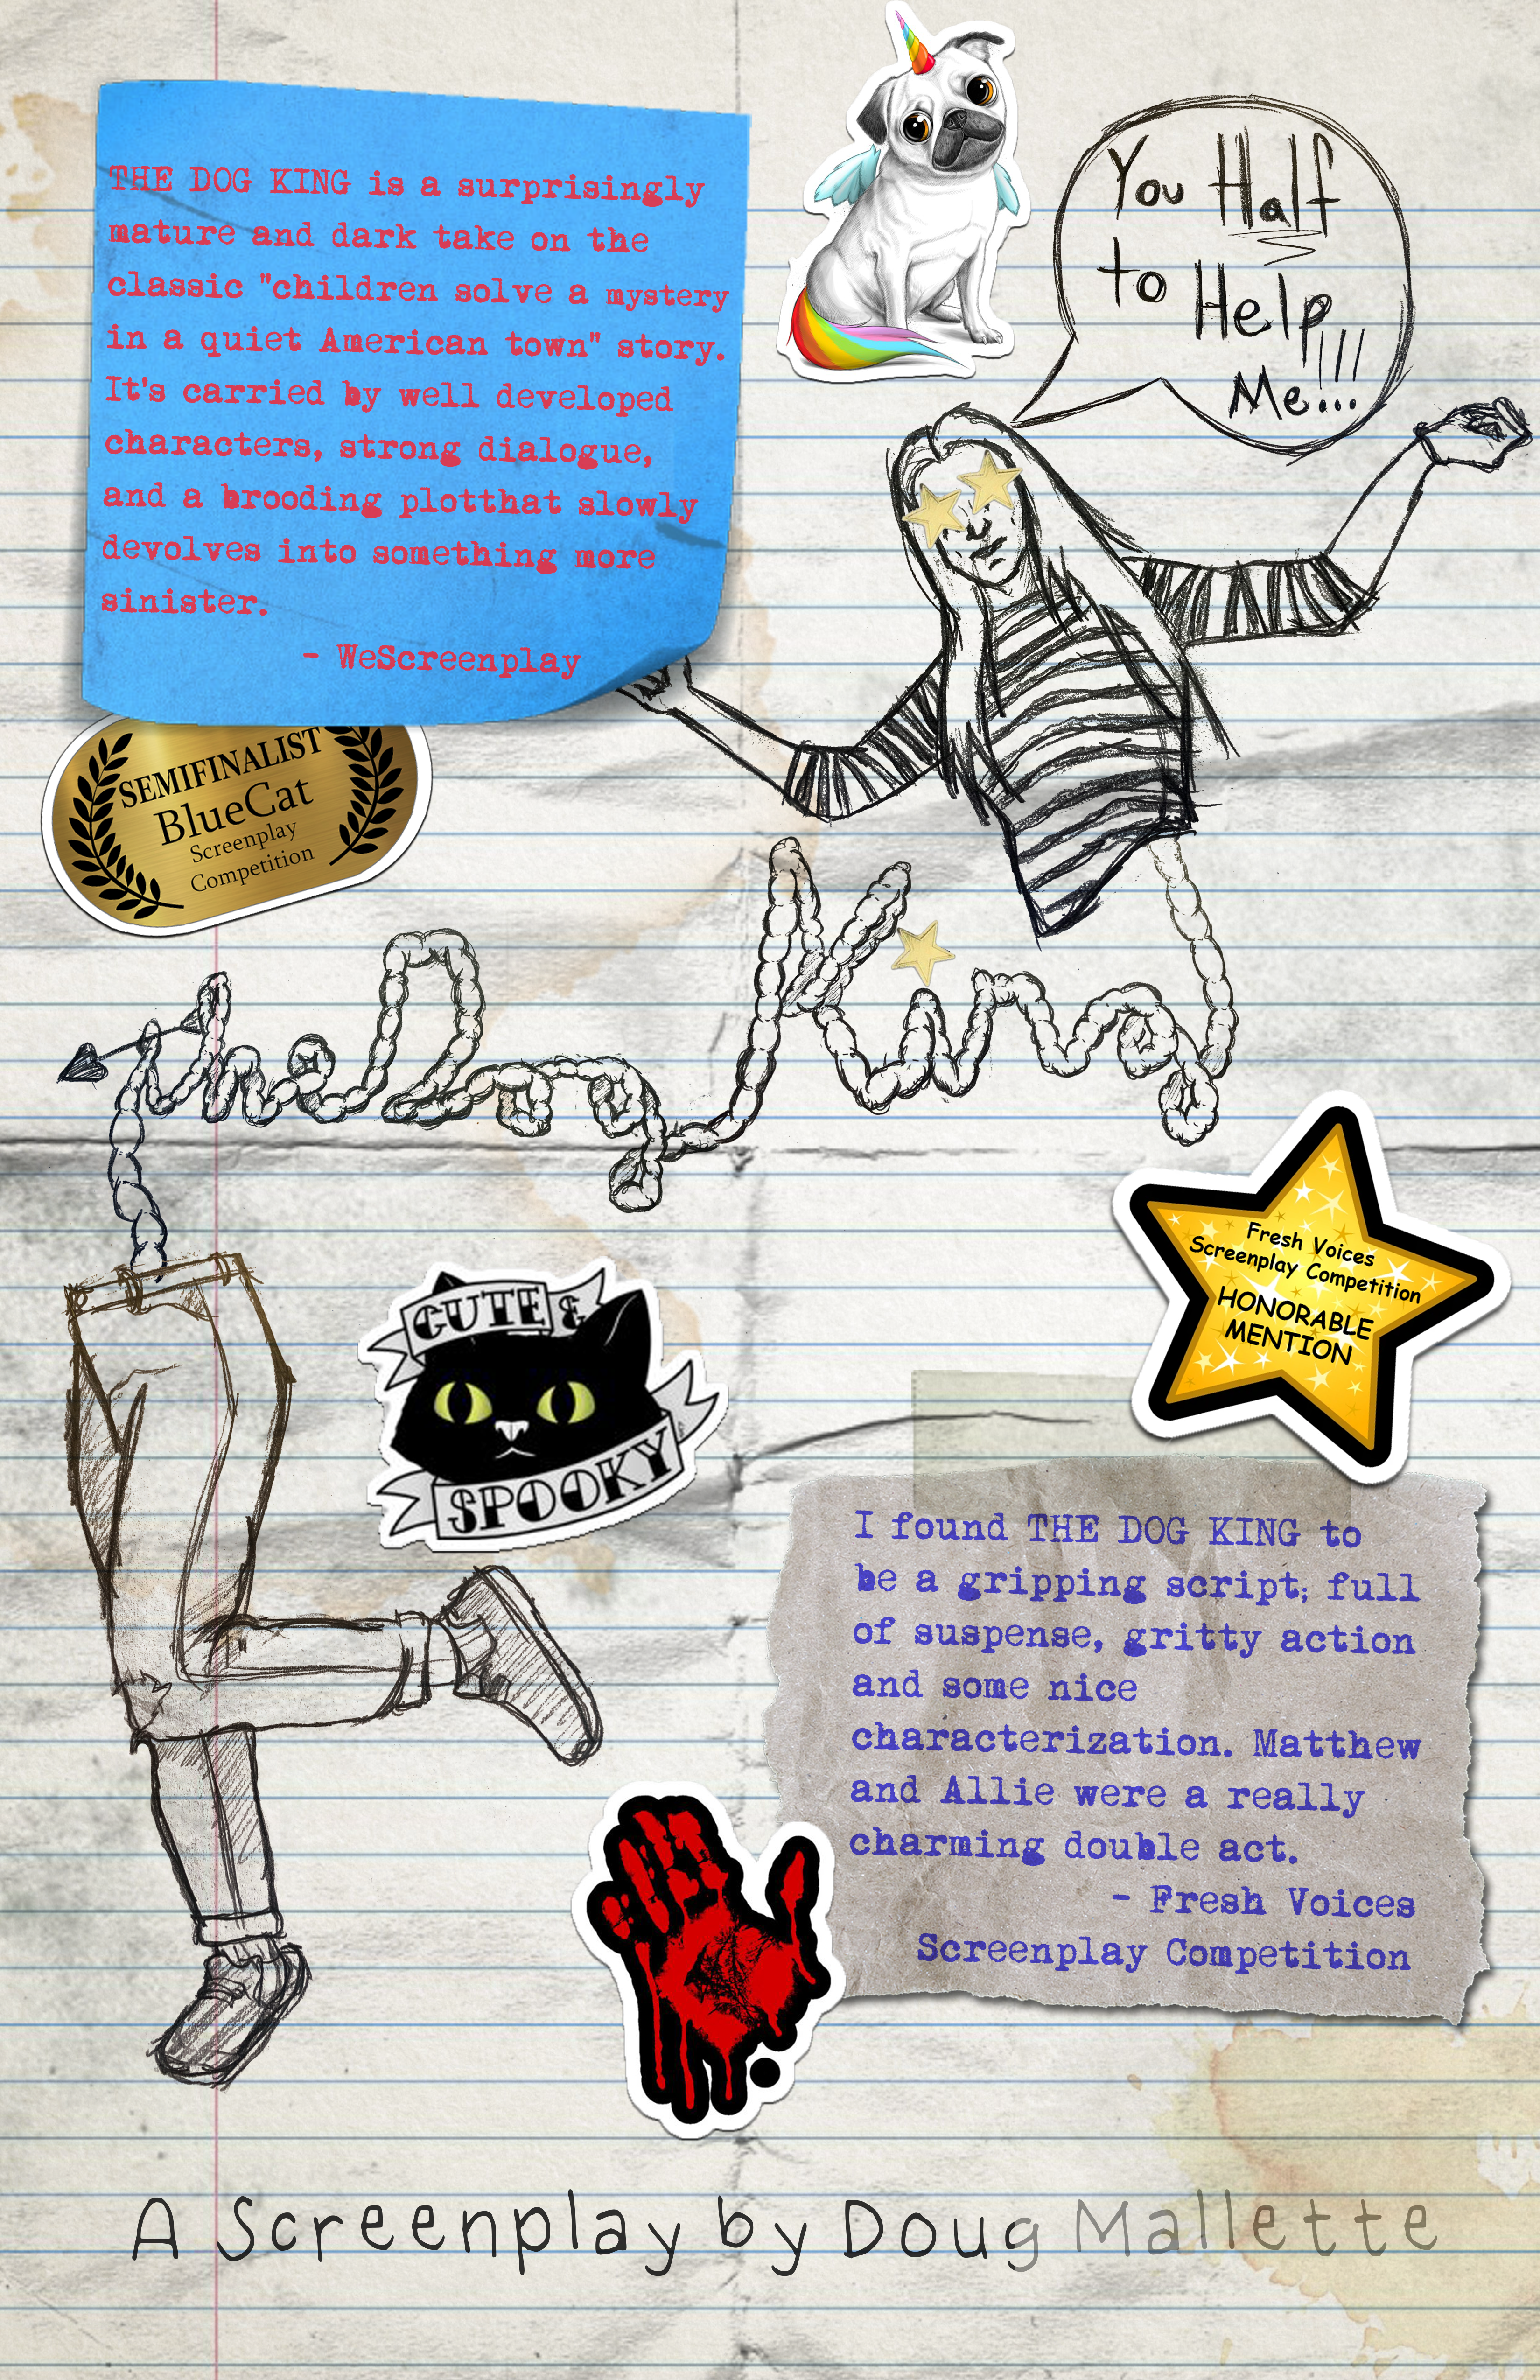 THE DOG KING is a surprisingly
mature and dark take on the
classic "children solve a mystery
in a quiet American town" story.
It's carried by well developed
characters, strong dialogue,
and a brooding plotthat slowly
devolves into something more
sinister.
- WeScreenplay
You Half
to Help
Me!!!
SEMIFINALIST
BlueCat
Screenplay
Competition
the Dog King
Fresh Voices
Screenplay Competition
HONORABLE
MENTION
CUTE &
SPOOKY
I found THE DOG KING to
be a gripping script; full
of suspense, gritty action
and some nice
characterization. Matthew
and Allie were a really
charming double act.
- Fresh Voices
Screenplay Competition
A Screenplay by Doug Mallette